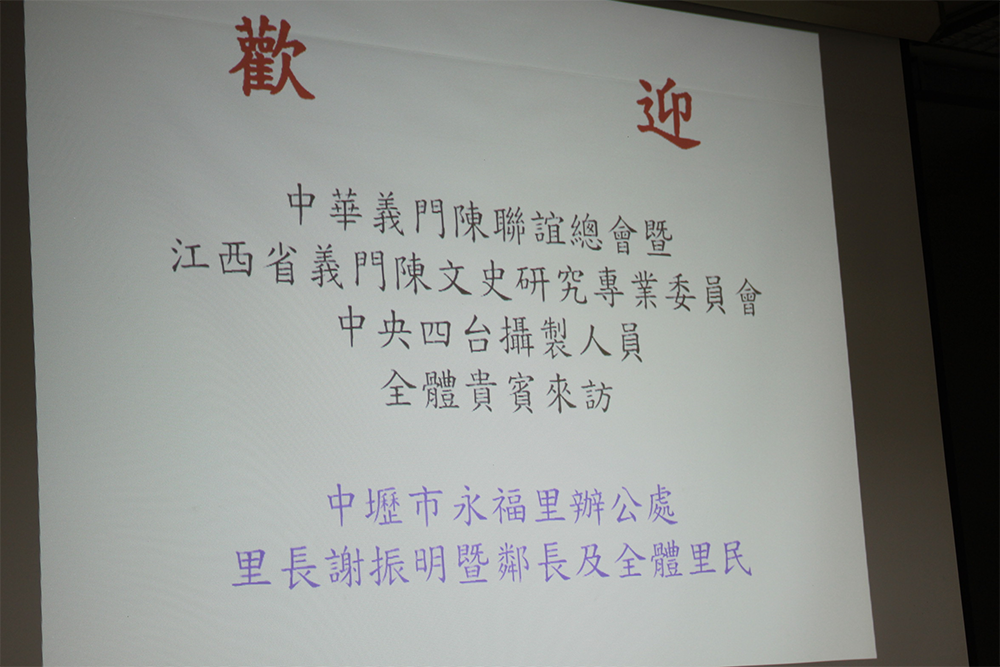 歡 迎
中華義門陳聯誼總會暨
江西省義門陳文史研究專業委員會
中央四台攝製人員
全體貴賓來訪
中壢市永福里辦公處
里長謝振明暨鄰長及全體里民